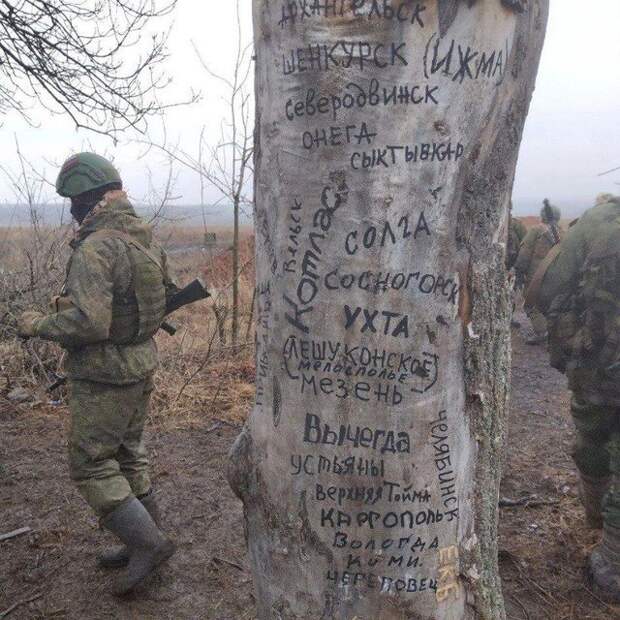 АРХАНГЕЛЬСК
ШЕНКУРСК (ИЖМА)
СЕВЕРОДВИНСК
ОНЕГА
СЫКТЫВКАР
Вельск
Котлас
СОЛГА
СОСНОГОРСК
УХТА
(ЛЕШУКОНСКОЕ)
МЕЛОСПОЛЬЕ
МЕЗЕНЬ
ВЫЧЕГДА
ЧЕЛЯБИНСК
УСТЬЯНЫ
ВЕРХНЯЯ ТОЙМА
КАРГОПОЛЬ
ВОЛОГДА
КИМ.
ЧЕРЕПОВЕЦ
ЕКБ